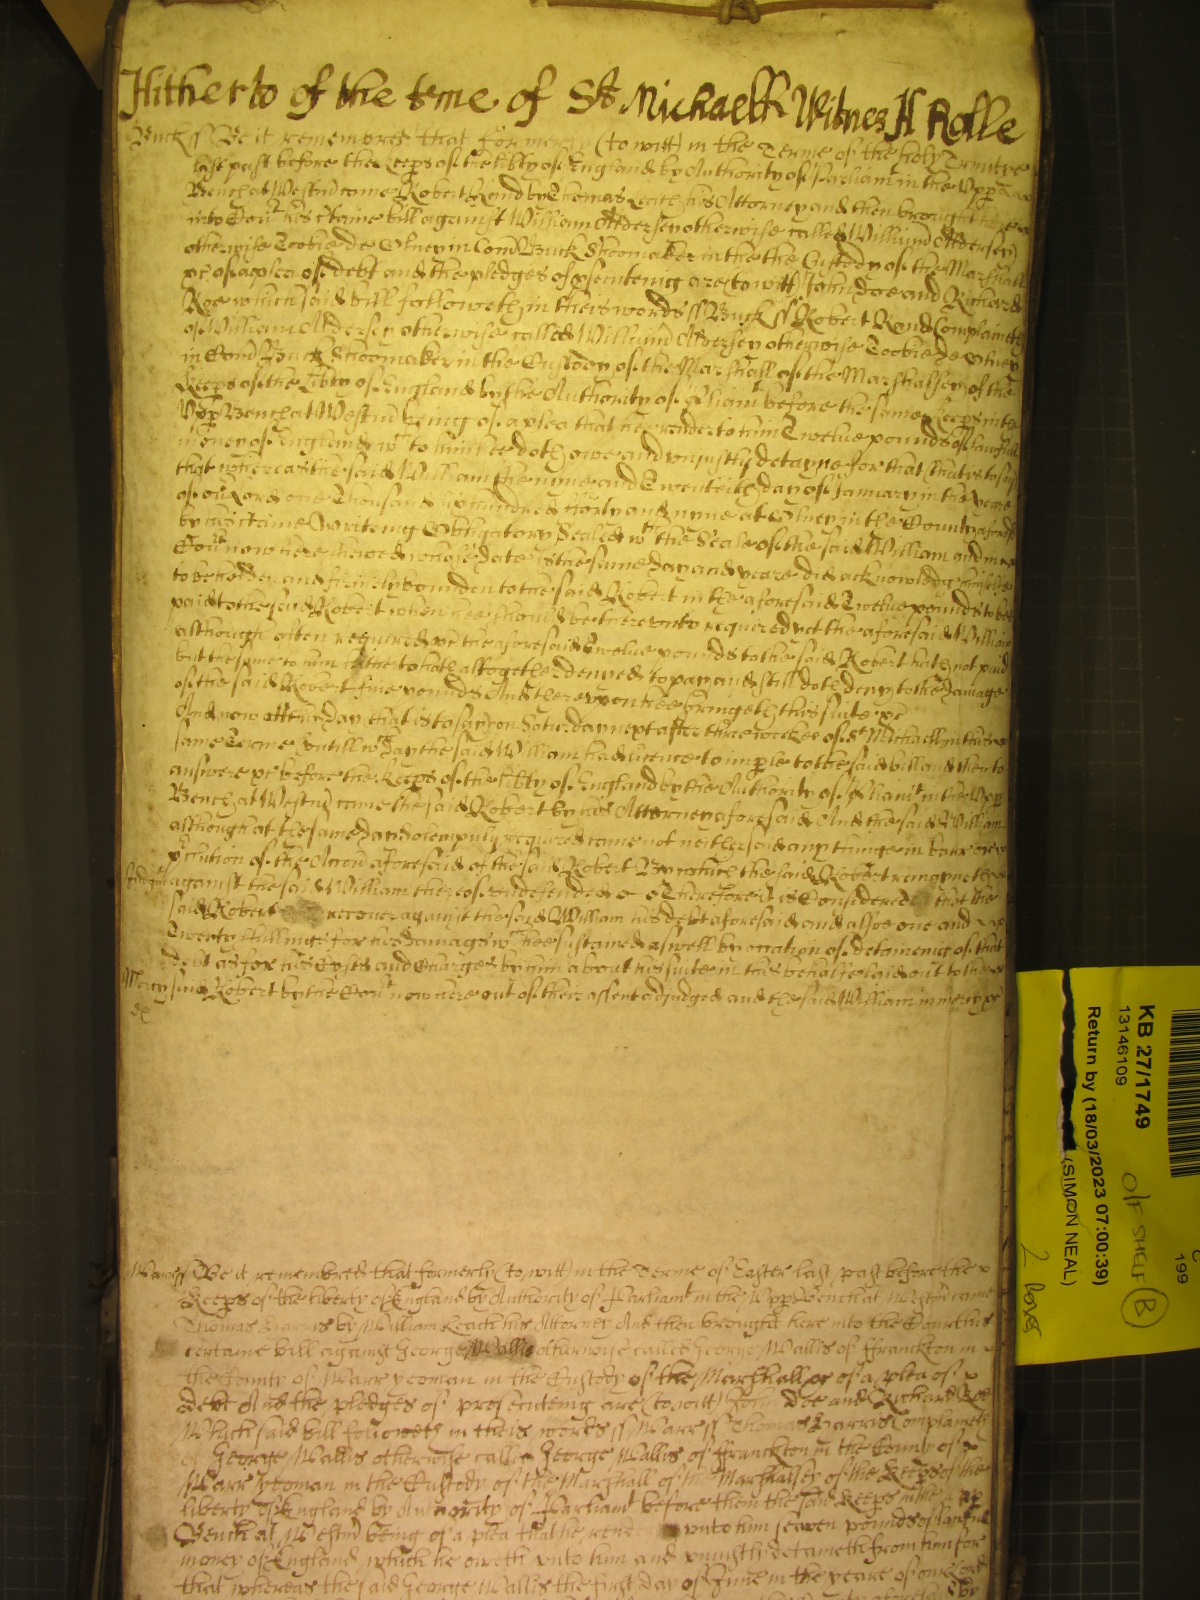 Hitherto of the tme of St Michaell Witnes H Rolle
Buck ss Be it remembred that formerly (to witt) in the Terme of the holy Trinitye
last past before the Keeps of the libty of England by Authority of Parliamt in the Upp
Bench at Westm came Robert Rond by Thomas Leach his Attorney and then brought here
into Court his ctaine bill against William Aldersey otherwise called William Aldersey
otherwise Cooke de Olney in Com Buck Shoomaker in the the Custody of the Marshall
&c of a plea of debt and the pledges of psenteing are (to witt) John Doe and Richard
Roe which said bill followeth in theis words ss Buck ss Robert Rond Complaineth
of William Aldersey otherwise called William Aldersey otherwise Cooke de Olney
in Com Buck Shoomaker in the Custody of the Marshall of the Marshalsey of the
Keeps of the Libty of England by the Authority of Pliamt before the same Keeps in the
Upp Bench at Westm being of a plea that hee render to him Twelve pounds of lawfull
money of England wch to him hee doth owe and unjustly detayne for that that is to say
that whereas the said William the nyne and Twentieth day of January in the yeare
of our Lord one Thousand six hundred forty and nyne at Olney in the County aforesd
by his ctaine writeing Obligatory Sealed wth the Seale of the said William and in
Court now here shewed whose date is the same day and yeare did acknowledg himselfe
to be holden and firmely bounden to the said Robert in the aforesaid Twelve pounds to bee
paid to the said Robert when hee should be thereunto required yet the aforesaid William
although often required &c the aforesaid Twelve pounds to the said Robert hath not paid
but the same to him hitherto hath altogether denyed to pay and still doth deny to the damage
of the said Robert five pounds And thereupon hee bringeth this suite &c
And now att this day that is to say on Saturday next after three weekes of St Michaell in this
same Terme untill wch day the said William had licence to imple to the said bill and then to
answere &c before the Keeps of the libty of England by the Authority of Pliamt in the Upp
Bench at Westm came the said Robert by his Attorney aforesaid And the said William
although at the same day solempnly required came not neither said any thinge in barr or
pclusion of the Accon aforesaid of the said Robert By which the said Robert remayneth
against the said William therefore undefended &c Therefore it is Considered that the
said Robert recover against the said William his debt aforesaid and alsoe one and
Twenty shillings for his damags wch hee sustained aswell by occation of deteineing of that
debt as for his Costs and Charges by him about his suite in this behalfe laid out to the
Mercy said Robert by the Court now here out of their assent adjudged and the said William in mercy &c
Warr ss Be it remembred that formerly (to witt) in the Terme of Easter last past before the
Keeps of the liberty of England by Authority of Parliamt in the Upp Bench at Westm came
Thomas Harris by William Leach his Attorney And then brought here into the Court his
certaine bill against George Wallis otherwise called George Wallis of ffranckton in
the County of Warr yeoman in the Custody of the Marshall &c of a plea of
debt And the pledges of prosecuteing are (to witt) John Doe and Richard Roe
Which said bill followeth in theis words ss Warr ss Thomas Harris Complaineth
of George Wallis otherwise called George Wallis of ffranckton in the County of
Warr yeoman in the Custody of the Marshall of the Marshalsey of the Keeps of the
liberty of England by Authority of Parliamt before them the said Keeps in the Upp
Bench at Westm being of a plea that he render unto him seaven pounds of lawfull
money of England which he oweth unto him and unjustly detaineth from him for
that whereas the said George Wallis the first day of June in the yeare of our Lord
KB 27/1749
13146109
Return by (18/03/2023 07:00:39)
(SIMON NEAL)
O/F SHELF B
2 boxes
199